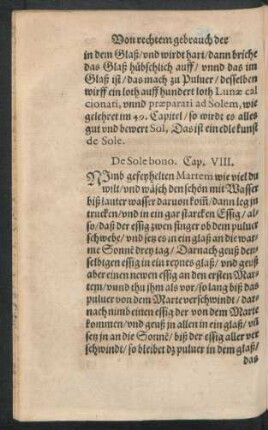 Von rechtem gebrauch der
in dem Glaß/vnd wirdt hart/dann briche
das Glaß hübschlich auff/ vnnd das im
Glaß ist/das mach zu Puluer/desselben
wirff ein loth auff hundert loth Lunæ cal
cionati, vnnd præparati ad Solem, wie
gelehret im 49. Capitel/so wirdt es alles
gut vnd bewert Sol, Das ist ein edle kunst
de Sole.
De Sole bono. Cap. VIII.
Nimb gefeyhelten Martem wie viel du
wilt/vnd wäsch den schön mit Wasser
biß lauter wasser daruon kom̃/dann leg in
trucken/vnd in ein gar starcken Essig/al-
so/daß der essig zwen finger ob dem puluer
schwebe/vnd sez es in ein glaß an die war-
me Sonnẽ drey tag/Darnach geuß den-
selbigen essig in ein reynes glaß/ vnd geuß
aber einen newen essig an den ersten Mar-
tem/vnnd thu jhm als vor/so lang biß das
puluer von dem Marte verschwindt/ dar-
nach nimb einen essig der von dem Marte
kommen/vnd geuß jn allen in ein glaß/vñ
sez jn an die Sonnẽ/ biß der essig aller ver-
schwindt/so bleibet dz puluer in dem glaß/
das